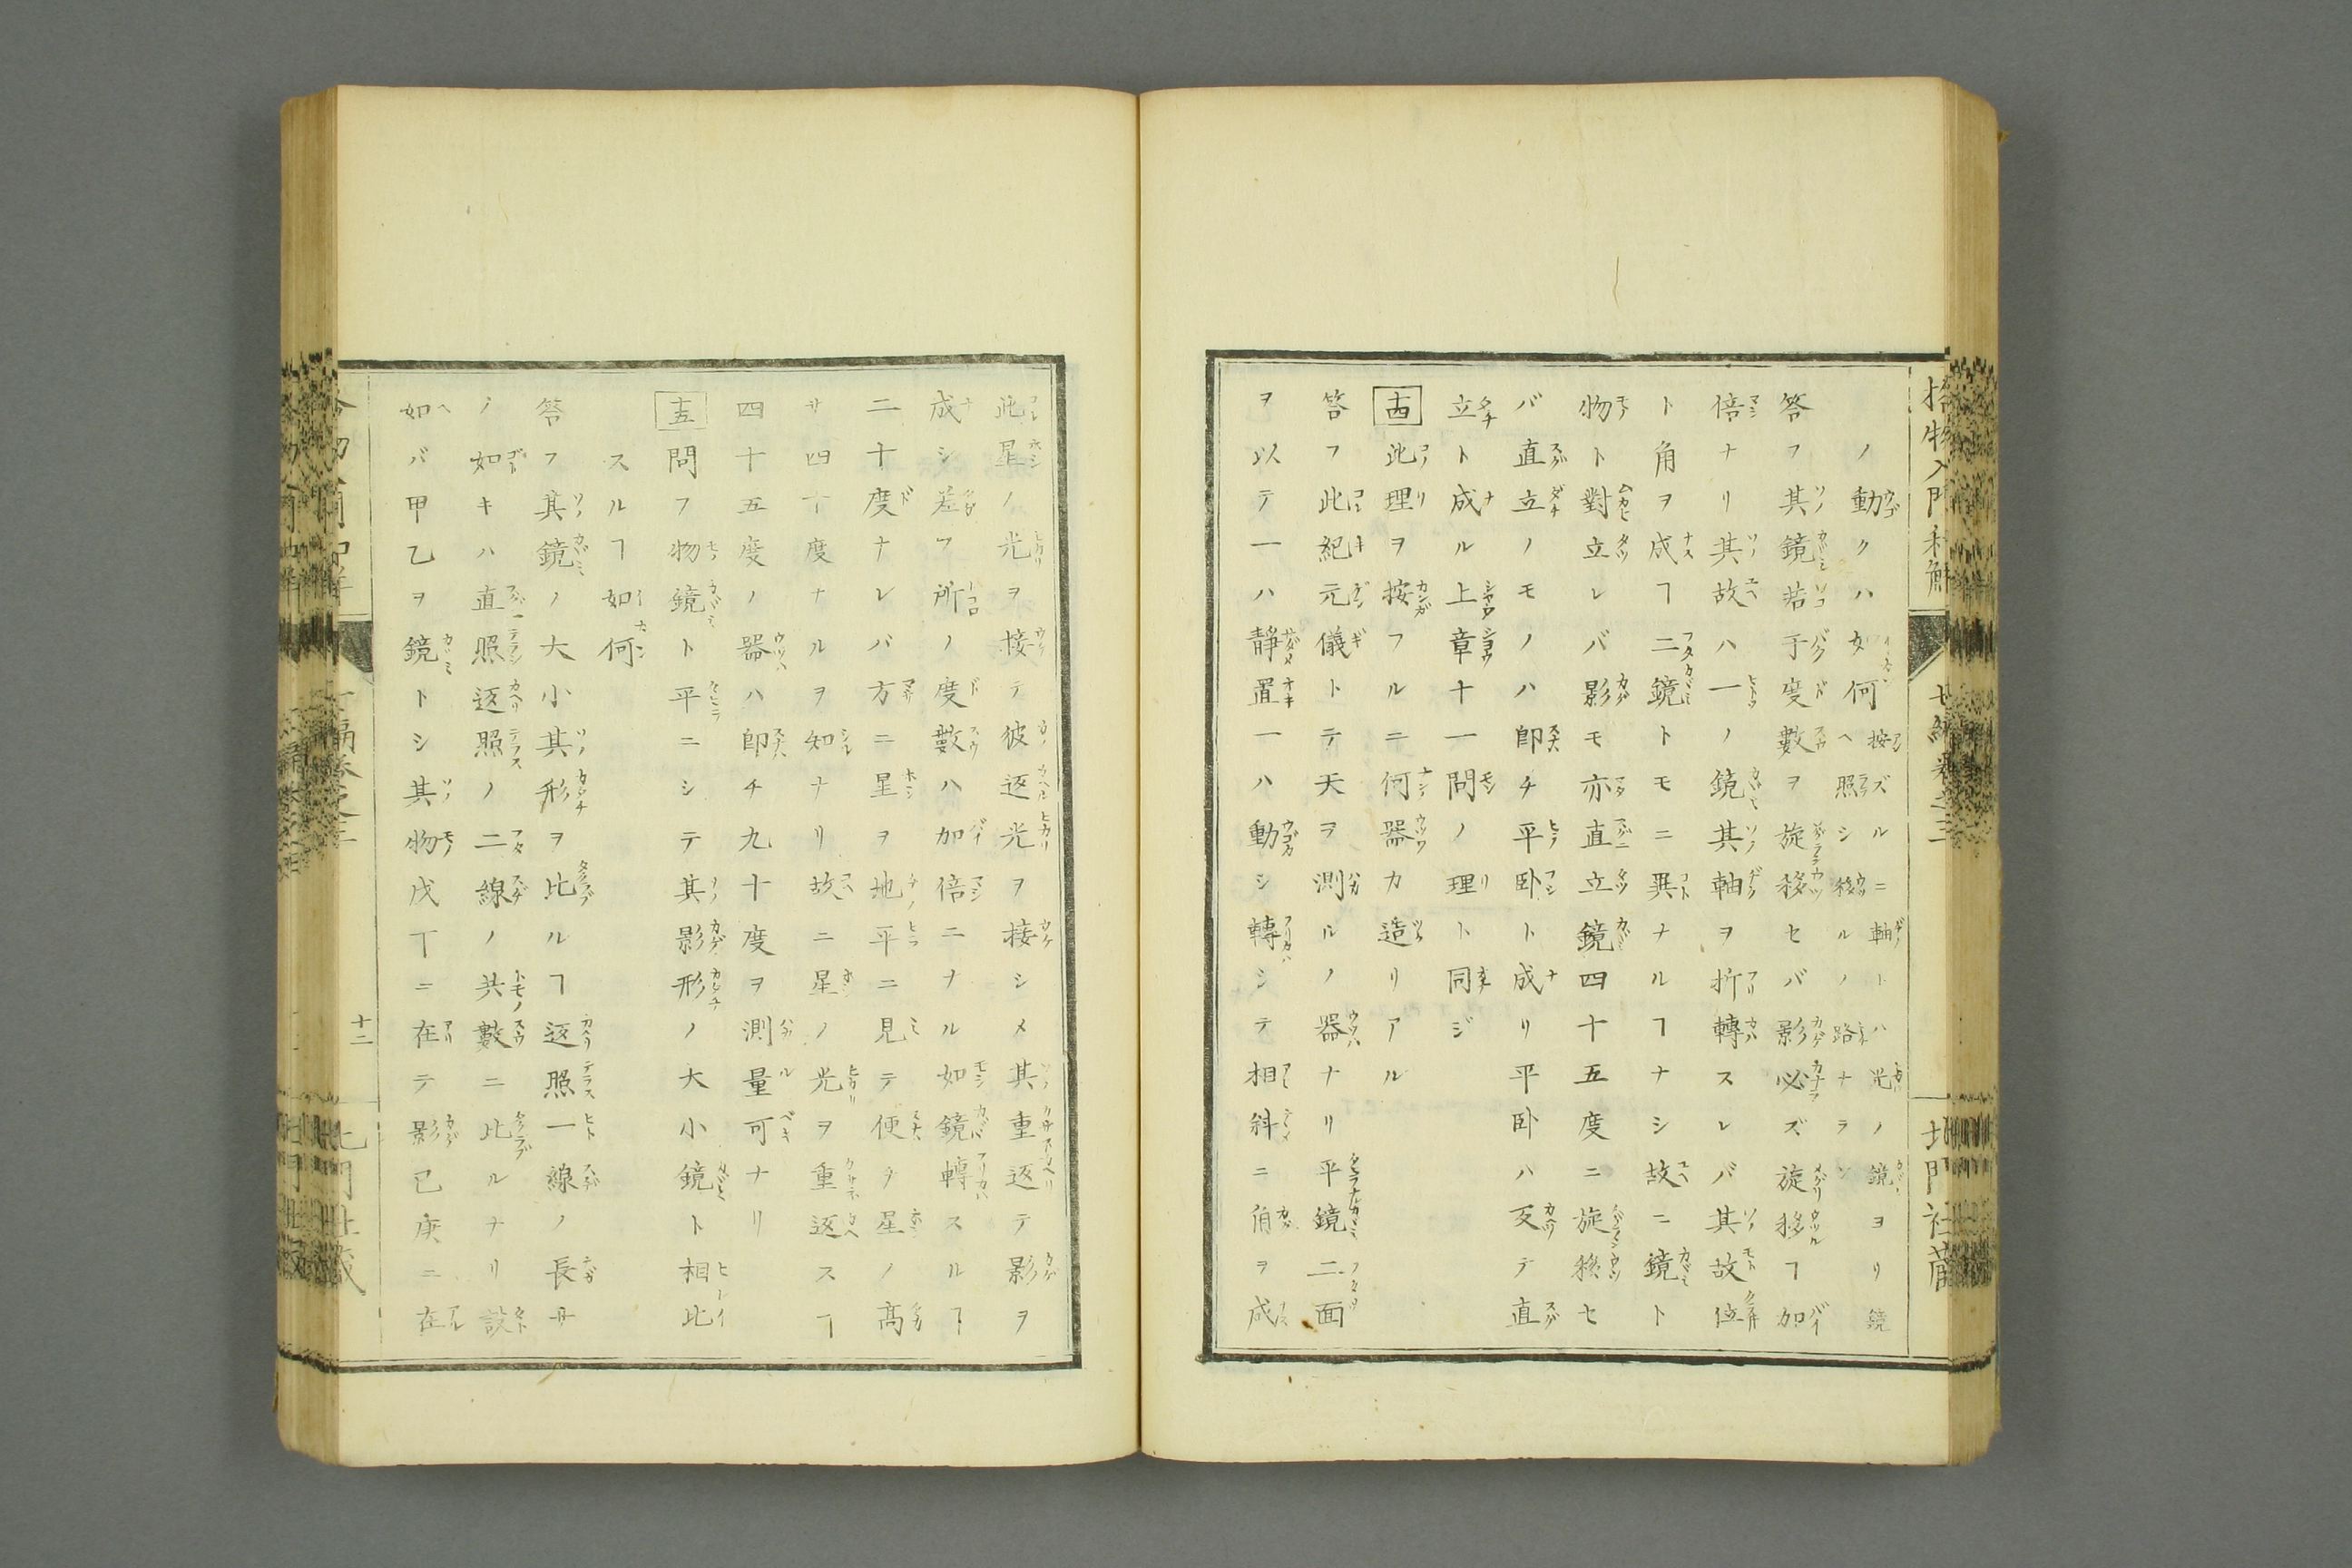 ノ動クハ如何 按ズルニ軸トハ光ノ鏡ヨリ鏡ヘ照シ移ルノ路ナラン
答フ其鏡若于度數ヲ旋移セバ影必ズ旋移ヿ加
倍ナリ其故ハ一ノ鏡其軸ヲ折轉スレバ其故位
ト角ヲ成ヿ二鏡トモニ異ナルヿナシ故ニ鏡ト
物ト對立レバ影モ亦直立鏡四十五度ニ旋移セ
バ直立ノモノハ卽チ平卧ト成リ平卧ハ反テ直
立ト成ル上章十一問ノ理ト同ジ
十四 此理ヲ按フルニ何器カ造リアル
答フ此紀元儀トテ天ヲ測ルノ器ナリ平鏡二面
ヲ以テ一ハ靜置一ハ動シ轉シテ相斜ニ角ヲ成
格物入門和解 七編卷之三 北門社藏
此星ノ光ヲ接テ彼返光ヲ接シメ其重返テ影ヲ
成シ差フ所ノ度數ハ加倍ニナル如鏡轉スルヿ
二十度ナレバ方ニ星ヲ地平ニ見テ便チ星ノ高
サ四十度ナルヲ知ナリ故ニ星ノ光ヲ重返スヿ
四十五度ノ器ハ卽チ九十度ヲ測量可ナリ
十五 問フ物鏡ト平ニシテ其影形ノ大小鏡ト相比
スルヿ如何
答フ其鏡ノ大小其形ヲ比ルヿ返照一線ノ長サ
ノ如キハ直照返照ノ二線ノ共數ニ比ルナリ設
如バ甲乙ヲ鏡トシ其物戊丁ニ在テ影已庚ニ在
十二